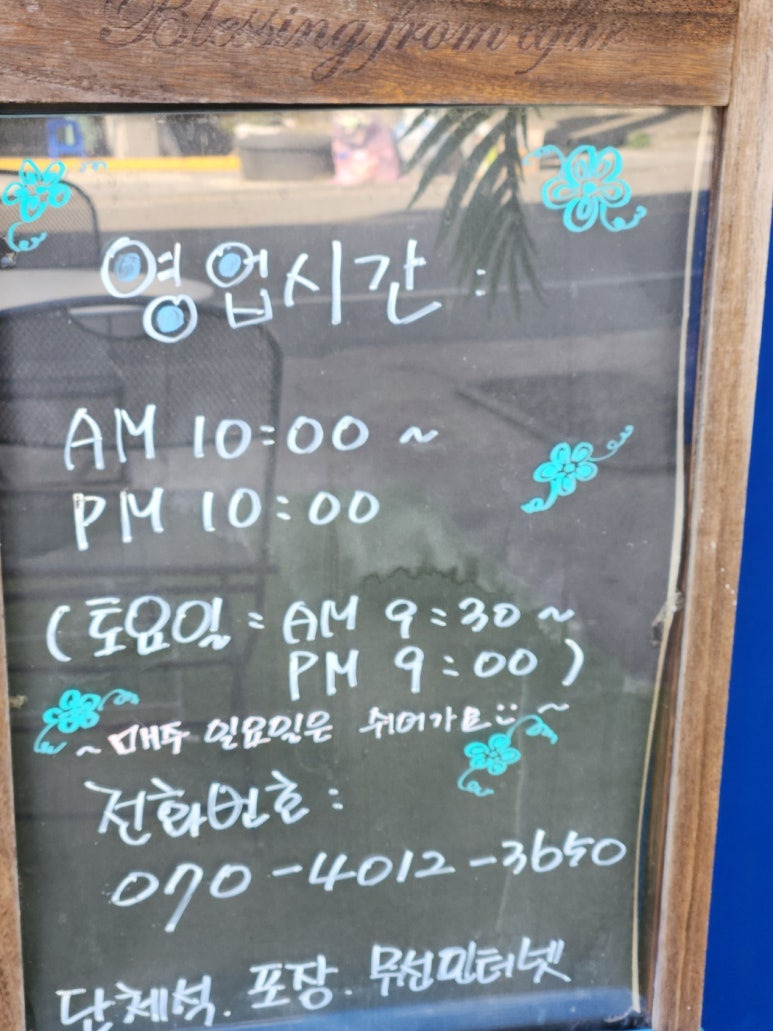 Blessing from afar
영업시간 :
AM 10:00 ~
PM 10:00
(토요일 : AM 9:30 ~
PM 9:00)
~ 매주 일요일은 쉬어가요 :) ~
전화번호 :
070-4012-3650
단체석. 포장. 무선인터넷